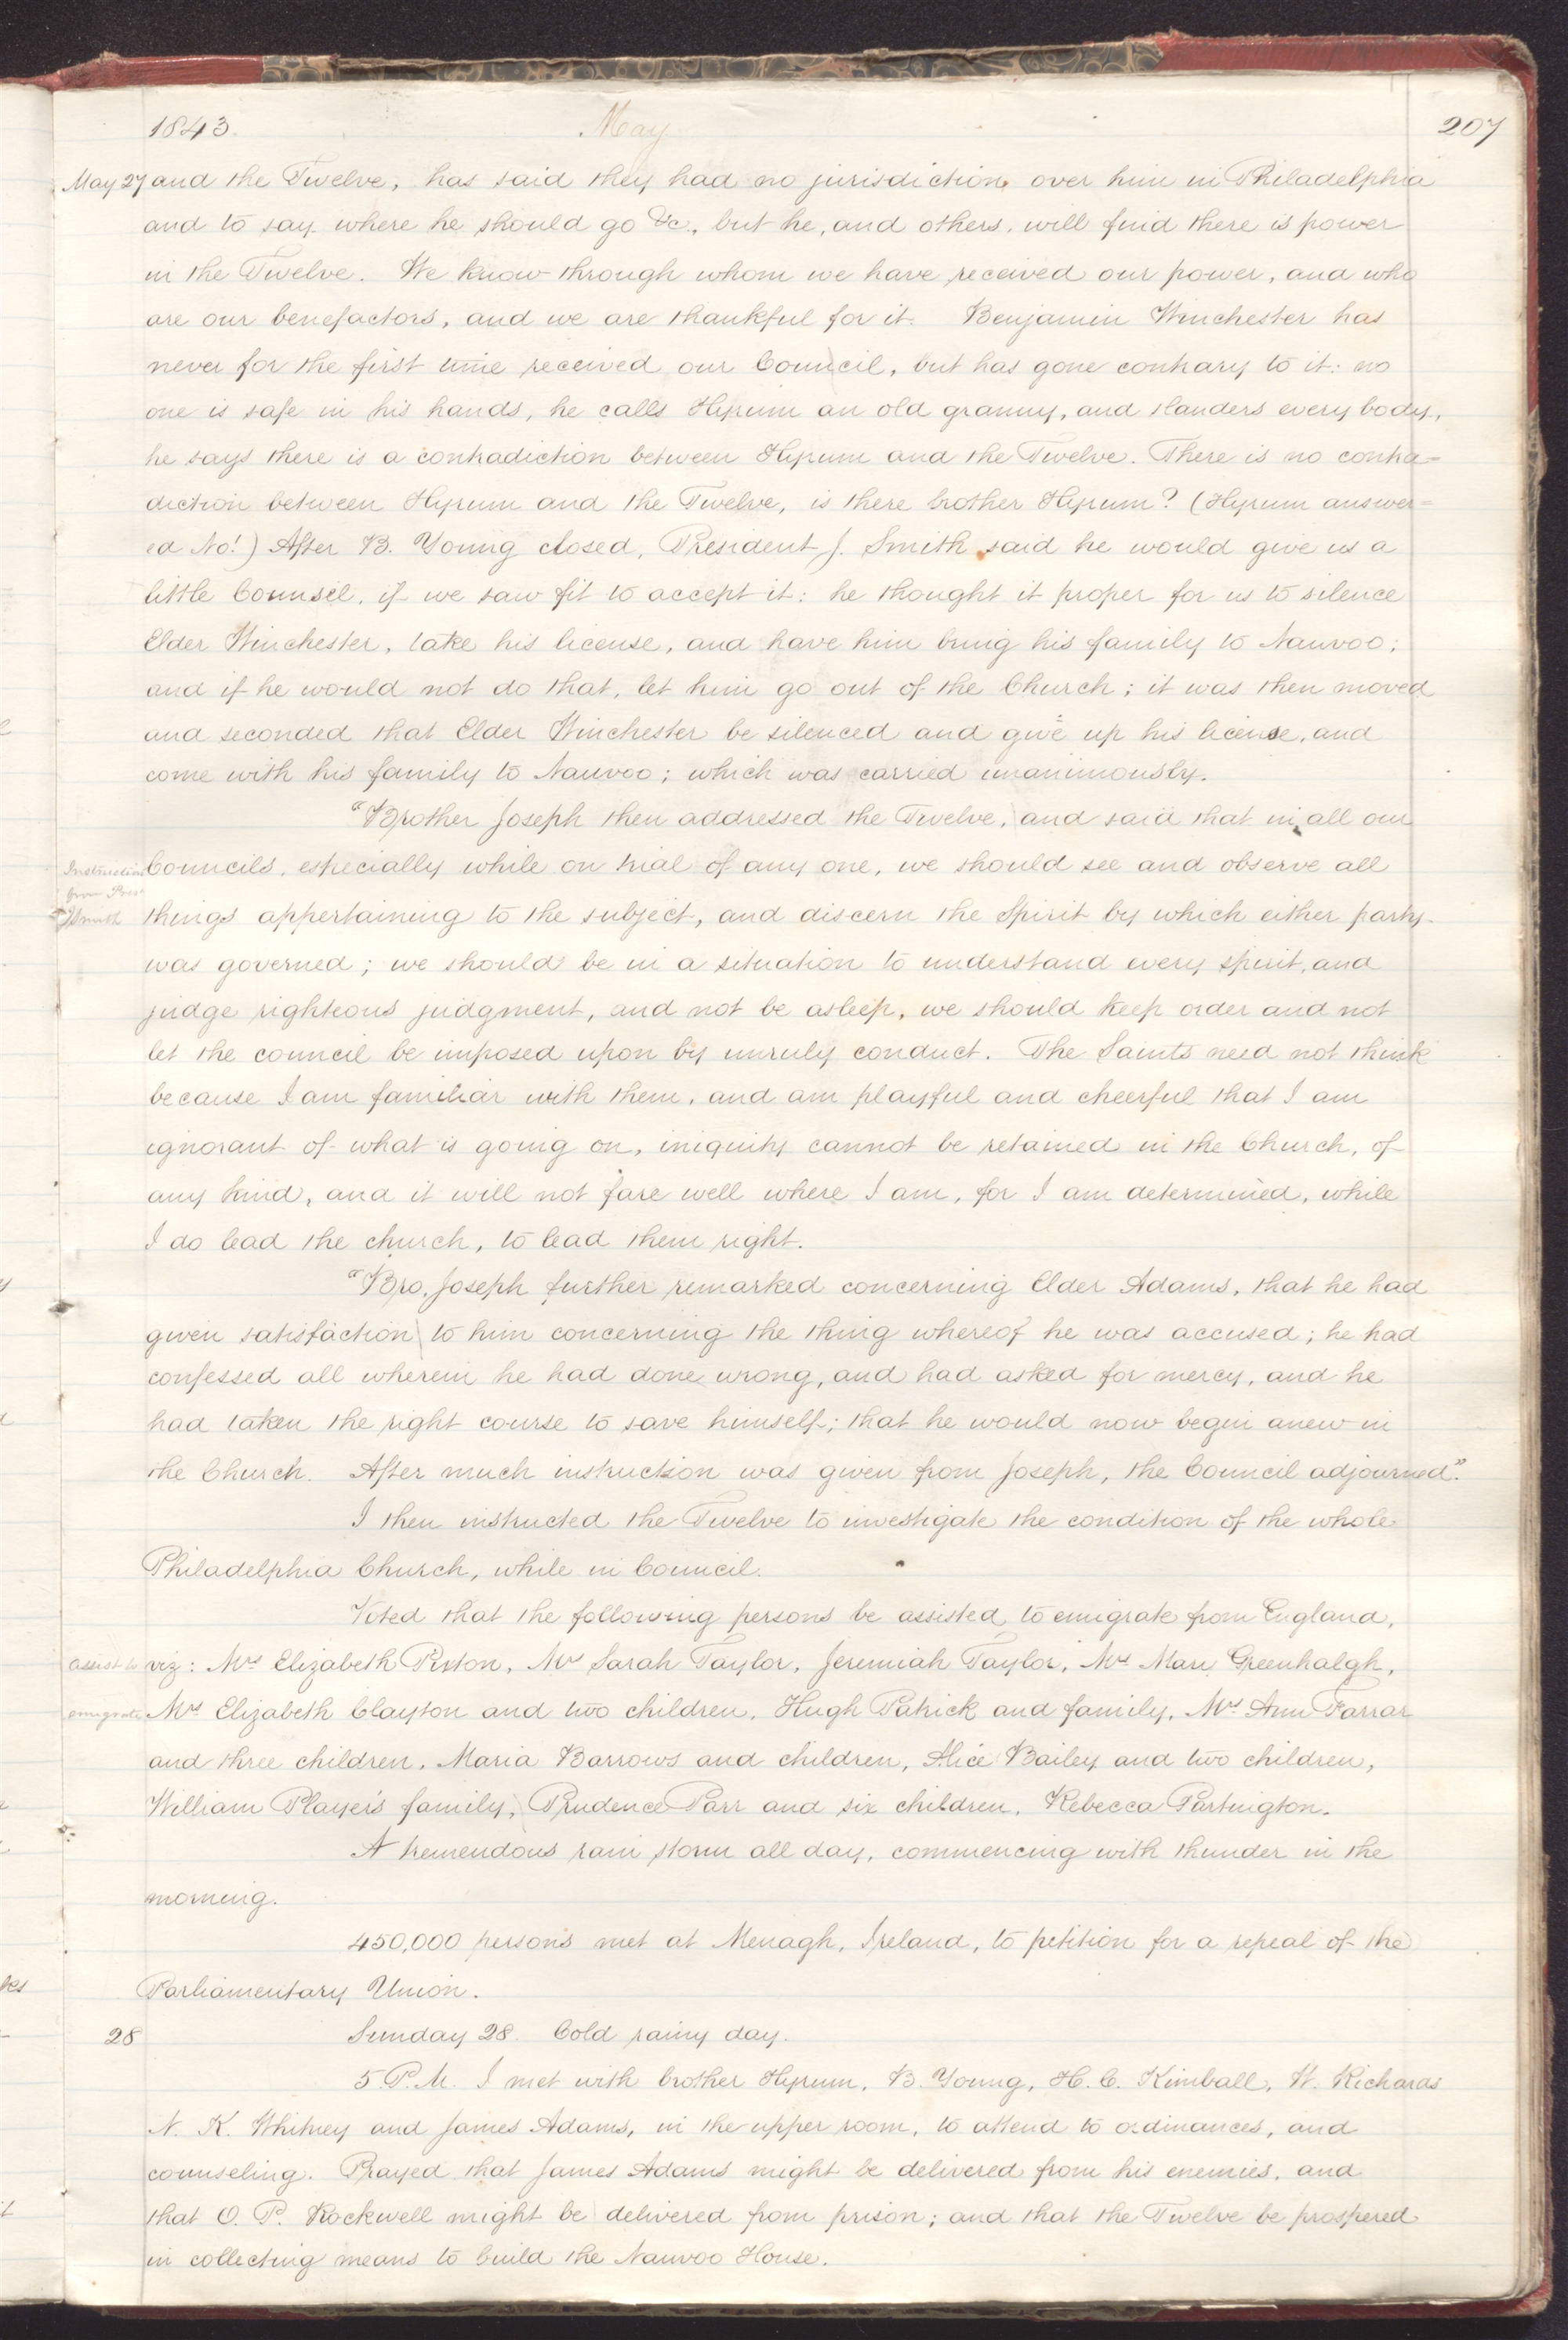 1843. May 207
May 27 and the Twelve, has said they had no jurisdiction over him in Philadelphia
and to say where he should go &c., but he, and others, will find there is power
in the Twelve. We know through whom we have received our power, and who
are our benefactors, and we are thankful for it. Benjamin Winchester has
never for the first time received our Council, but has gone contrary to it: no
one is safe in his hands, he calls Hyrum an old granny, and slanders every body,
he says there is a contradiction between Hyrum and the Twelve. There is no contra=
diction between Hyrum and the Twelve, is there brother Hyrum? (Hyrum answer=
ed No!) After B. Young closed, President J. Smith said he would give us a
little Counsel, if we saw fit to accept it: he thought it proper for us to silence
Elder Winchester, take his license, and have him bring his family to Nauvoo;
and if he would not do that, let him go out of the Church; it was then moved
and seconded that Elder Winchester be silenced and give up his license, and
come with his family to Nauvoo; which was carried unanimously.
"Brother Joseph then addressed the Twelve, and said that in all our
Instruction from Prest J Smith
Councils, especially while on trial of any one, we should see and observe all
things appertaining to the subject, and discern the Spirit by which either party
was governed; we should be in a situation to understand every spirit, and
judge righteous judgment, and not be asleep, we should keep order and not
let the council be imposed upon by unruly conduct. The Saints need not think
because I am familiar with them, and am playful and cheerful that I am
ignorant of what is going on, iniquity cannot be retained in the Church, of
any kind, and it will not fare well where I am, for I am determined, while
I do lead the church, to lead them right.
"Bro. Joseph further remarked concerning Elder Adams, that he had
given satisfaction to him concerning the thing whereof he was accused; he had
confessed all wherein he had done wrong, and had asked for mercy, and he
had taken the right course to save himself; that he would now begin anew in
the Church. After much instruction was given from Joseph, the Council adjourned."
I then instructed the Twelve to investigate the condition of the whole
Philadelphia Church, while in Council.
Voted that the following persons be assisted to emigrate from England,
assist to viz: Mrs Elizabeth Piston, Mrs Sarah Taylor, Jeremiah Taylor, Mrs Mary Greenhalgh,
emigrate Mrs Elizabeth Clayton and two children, Hugh Patrick and family, Mrs Ann Farrar
and three children, Maria Barrows and children, Alice Bailey and two children,
William Player's family, Prudence Parr and six children, Rebecca Partington.
A tremendous rain storm all day, commencing with thunder in the
morning.
450,000 persons met at Menagh, Ireland, to petition for a repeal of the
Parliamentary Union.
28 Sunday 28. Cold rainy day.
5 P.M. I met with brother Hyrum, B. Young, H. C. Kimball, W. Richards
N. K. Whitney and James Adams, in the upper room, to attend to ordinances, and
counseling. Prayed that James Adams might be delivered from his enemies, and
that O. P. Rockwell might be delivered from prison; and that the Twelve be prospered
in collecting means to build the Nauvoo House.